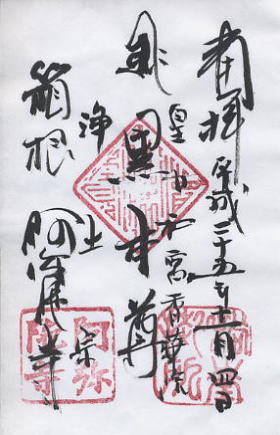 奉拝 平成二十五年 四日
皇女和宮香華院
黒本尊
浄土宗
箱根 阿弥陀寺
阿弥陀寺